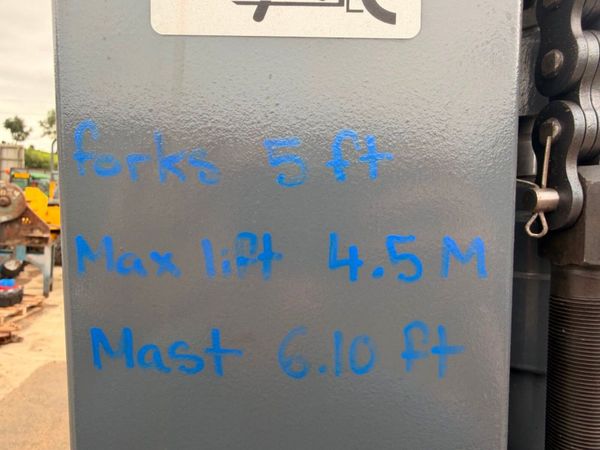 forks 5 ft
Max lift 4.5 M
Mast 6.10 ft